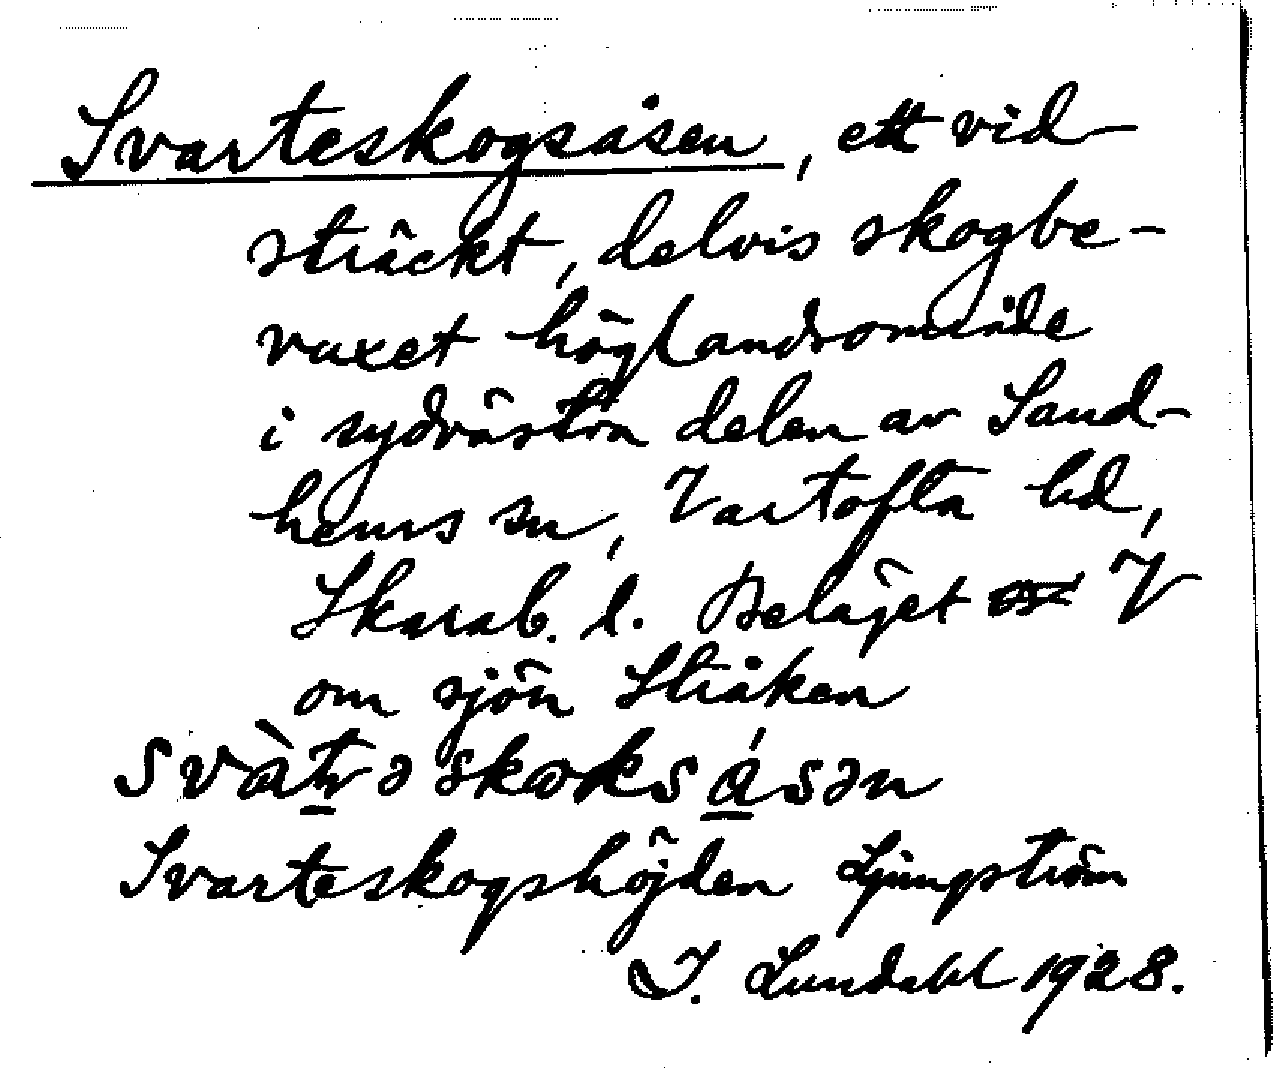 Svarteskogsåsen, ett vid-
sträckt, delvis skogbe-
vuxet höglandsområde
i sydvästra delen av Sand-
hems sn, Vartofta hd,
Skarab. l. Beläget V
om sjön Stråken
svàt̲rə skoksá̲sən
Svarteskogshöjden Ljungström
I. Lundahl 1928.